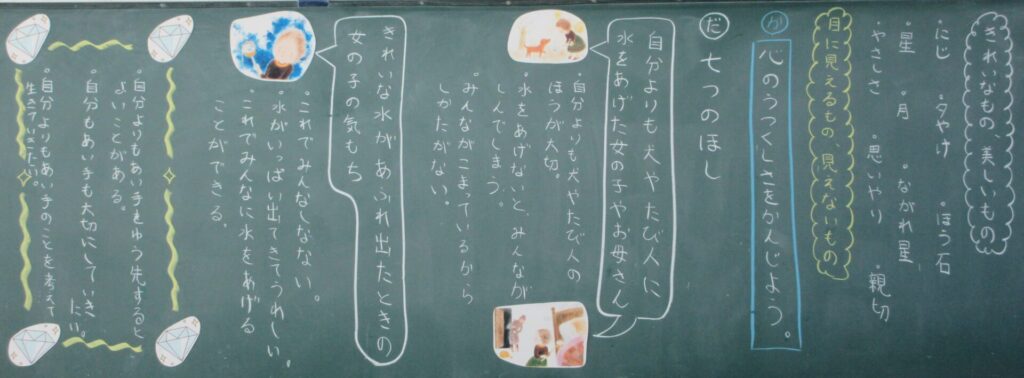 きれいなもの、美しいもの
・にじ ・夕やけ ・ほう石
・星 ・月 ・ながれ星
・やさしさ ・思いやり ・親切
目に見えるもの、見えないもの
か 心のうつくしさをかんじよう。
だ 七つのほし
自分よりも犬やたび人に
水をあげた女の子やお母さん
・自分よりも犬やたび人の
ほうが大切。
・水をあげないと、みんなが
しんでしまう。
・みんながこまっているから
しかたがない。
きれいな水があふれ出たときの
女の子の気もち
・これでみんなしなない。
・水がいっぱい出てきてうれしい。
・これでみんなに水をあげる
ことができる。
・自分よりもあい手をゆう先すると
よいことがある。
・自分もあい手も大切にしていき
たい。
・自分よりもあい手のことを考えて
生きていきたい。